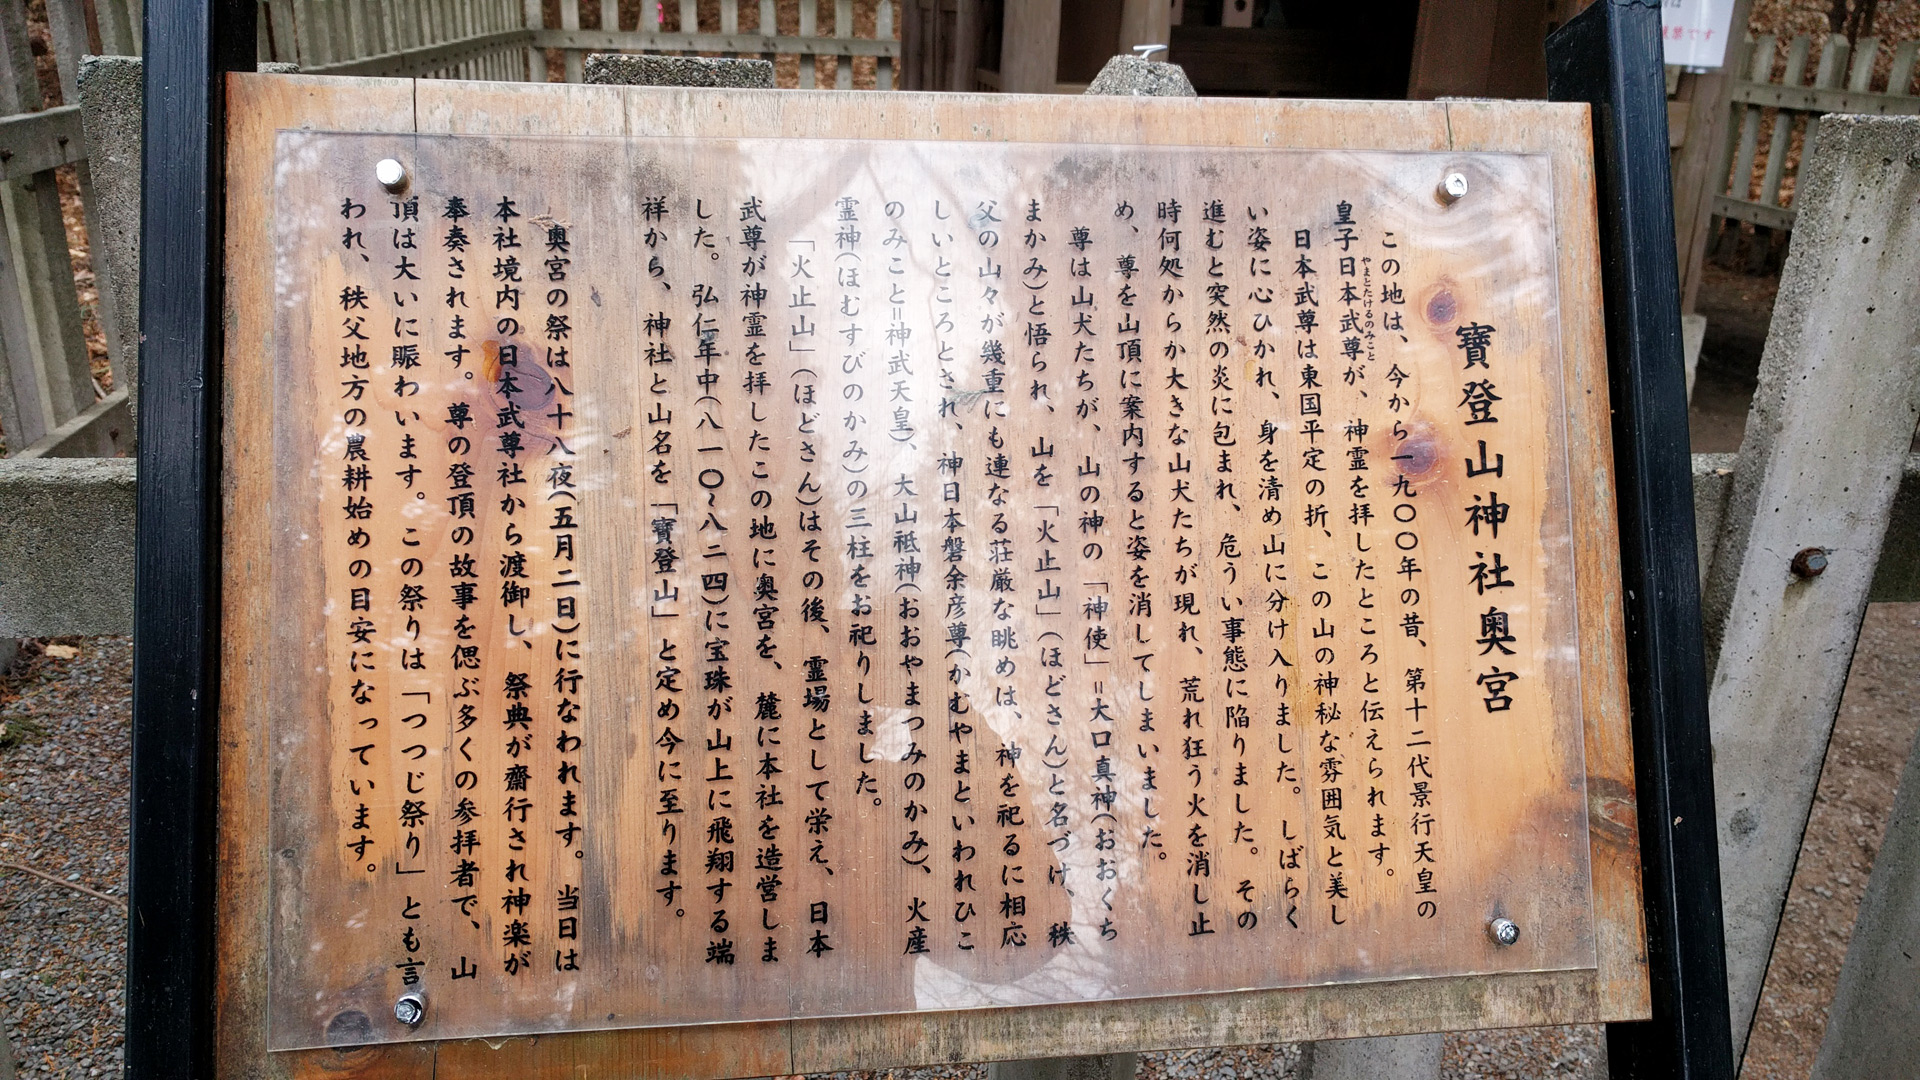 寶登山神社奥宮
この地は、今から一九〇〇年の昔、第十二代景行天皇の
皇子日本武尊が、神霊を拝したところと伝えられます。
やまとたけるのみこと
日本武尊は東国平定の折、この山の神秘な雰囲気と美し
い姿に心ひかれ、身を清め山に分け入りました。しばらく
進むと突然の炎に包まれ、危うい事態に陥りました。その
時何処からか大きな山犬たちが現れ、荒れ狂う火を消し止
め、尊を山頂に案内すると姿を消してしまいました。
尊は山犬たちが、山の神の「神使」=大口真神(おおくち
まかみ)と悟られ、山を「火止山」(ほどさん)と名づけ、秩
父の山々が幾重にも連なる荘厳な眺めは、神を祀るに相応
しいところとされ、神日本磐余彦尊(かむやまといわれひこ
のみこと=神武天皇)、大山祗神(おおやまつみのかみ)、火産
霊神(ほむすびのかみ)の三柱をお祀りしました。
「火止山」(ほどさん)はその後、霊場として栄え、日本
武尊が神霊を拝したこの地に奥宮を、麓に本社を造営しま
した。弘仁年中(八一〇~八二四)に宝珠が山上に飛翔する端
祥から、神社と山名を「寶登山」と定め今に至ります。
奥宮の祭は八十八夜(五月二日)に行なわれます。当日は
本社境内の日本武尊社から渡御し、祭典が齋行され神楽が
奉奏されます。尊の登頂の故事を偲ぶ多くの参拝者で、山
頂は大いに賑わいます。この祭りは「つつじ祭り」とも言
われ、秩父地方の農耕始めの目安になっています。
です